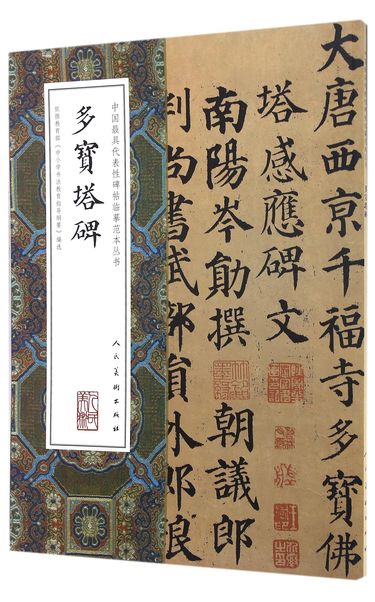 大唐西京千福寺多寶佛
塔感應碑文
南陽岑勛撰 朝議郎
判尚書武部員外郎琅
中国最具代表性碑帖临摹范本丛书
多寶塔碑
依据教育部《中小学书法教育指导纲要》编选
人民美術出版社